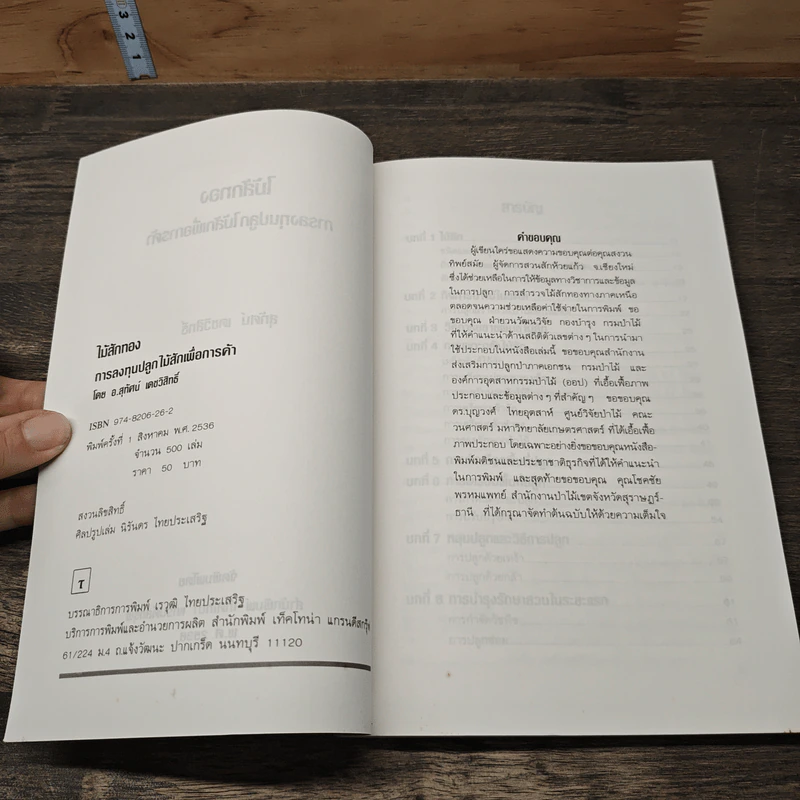 3
2
1
ไม้สักทอง
การลงทุนปลูกไม้สักเพื่อการค้า
โดย อ.สุทัศน์ เดชวิสิทธิ์
ISBN 974-8206-26-2
พิมพ์ครั้งที่ 1 สิงหาคม พ.ศ.2536
จำนวน 500 เล่ม
ราคา 50 บาท
สงวนลิขสิทธิ์
ศิลปรูปเล่ม นิรันดร ไทยประเสริฐ
T
บรรณาธิการการพิมพ์ เรวุฒิ ไทยประเสริฐ
บริการการพิมพ์และอำนวยการผลิต สำนักพิมพ์ เท็คโทน่า แกรนดีสกรุ๊ป
61/224 ม.4 ถ.แจ้งวัฒนะ ปากเกร็ด นนทบุรี 11120
คำขอบคุณ
ผู้เขียนใคร่ขอแสดงความขอบคุณต่อคุณสงวน
ทิพย์สมัย ผู้จัดการสวนสักห้วยแก้ว จ.เชียงใหม่
ซึ่งได้ช่วยเหลือในการให้ข้อมูลทางวิชาการและข้อมูล
ในการปลูก การสำรวจไม้สักทองทางภาคเหนือ
ตลอดจนความช่วยเหลือค่าใช้จ่ายในการพิมพ์ ขอ
ขอบคุณ ฝ่ายวนวัฒนวิจัย กองบำรุง กรมป่าไม้
ที่ให้คำแนะนำด้านสถิติตัวเลขต่าง ๆ ในการนำมา
ใช้ประกอบในหนังสือเล่มนี้ ขอขอบคุณสำนักงาน
ส่งเสริมการปลูกป่าภาคเอกชน กรมป่าไม้ และ
องค์การอุตสาหกรรมป่าไม้ (ออป) ที่เอื้อเฟื้อภาพ
ประกอบและข้อมูลต่าง ๆ ที่สำคัญ ๆ ขอขอบคุณ
ดร.บุญวงศ์ ไทยอุตสาห์ ศูนย์วิจัยป่าไม้ คณะ
วนศาสตร์ มหาวิทยาลัยเกษตรศาสตร์ ที่ได้เอื้อเฟื้อ
ภาพประกอบ โดยเฉพาะอย่างยิ่งขอขอบคุณหนังสือ-
พิมพ์มติชนและประชาชาติธุรกิจที่ได้ให้คำแนะนำ
ในการพิมพ์ และสุดท้ายขอขอบคุณ คุณโชคชัย
พรหมแพทย์ สำนักงานป่าไม้เขตจังหวัดสุราษฎร์-
ธานี ที่ได้กรุณาจัดทำต้นฉบับให้ด้วยความเต็มใจ